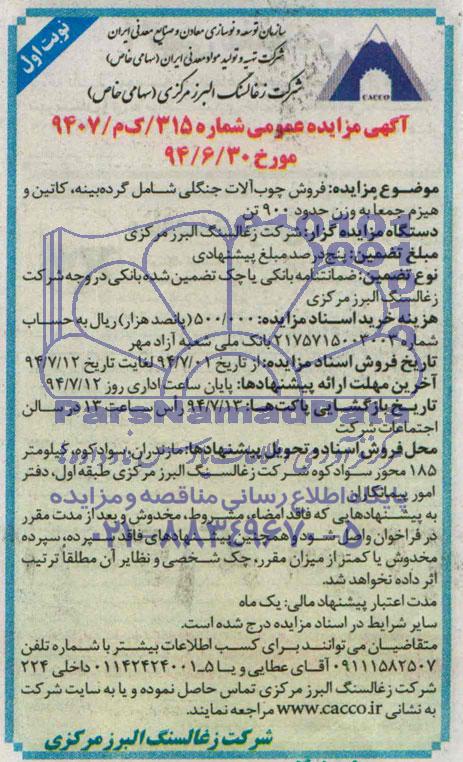 نوبت اول
سازمان توسعه و نوسازی معادن و صنایع معدنی ایران
شرکت تهیه و تولید مواد معدنی ایران (سهامی خاص)
شرکت زغالسنگ البرز مرکزی (سهامی خاص)
CACCO
آگهی مزایده عمومی شماره ۳۱۵/ک‌م/۹۴۰۷
مورخ ۹۴/۶/۳۰
موضوع مزایده: فروش چوب‌آلات جنگلی شامل گرده‌بینه، کاتین و
هیزم جمعاً به وزن حدود ۹۰۰ تن
دستگاه مزایده گزار: شرکت زغالسنگ البرز مرکزی
مبلغ تضمین: پنج درصد مبلغ پیشنهادی
نوع تضمین: ضمانتنامه بانکی یا چک تضمین شده بانکی در وجه شرکت
زغالسنگ البرز مرکزی
هزینه خرید اسناد مزایده: ۵۰۰/۰۰۰ (پانصد هزار) ریال به حساب
شماره ۲۱۷۵۷۱۵۰۰۳۰۰۴ بانک ملی شعبه آزاد مهر
تاریخ فروش اسناد مزایده: از تاریخ ۹۴/۷/۰۱ لغایت تاریخ ۹۴/۷/۱۲
آخرین مهلت ارائه پیشنهادها: پایان ساعت اداری روز ۹۴/۷/۱۲
تاریخ بازگشایی پاکت‌ها: ۹۴/۷/۱۳ رأس ساعت ۱۳ در سالن
اجتماعات شرکت
محل فروش اسناد و تحویل پیشنهادها: مازندران، سوادکوه، کیلومتر
۱۸۵ محور سوادکوه شرکت زغالسنگ البرز مرکزی طبقه اول، دفتر
امور پیمانکاران
به پیشنهادهایی که فاقد امضاء، مشروط، مخدوش و بعد از مدت مقرر
در فراخوان واصل شود و همچنین پیشنهادهای فاقد سپرده، سپرده
مخدوش یا کمتر از میزان مقرر، چک شخصی و نظایر آن مطلقاً ترتیب
اثر داده نخواهد شد.
مدت اعتبار پیشنهاد مالی: یک ماه
سایر شرایط در اسناد مزایده درج شده است.
متقاضیان می‌توانند برای کسب اطلاعات بیشتر با شماره تلفن
۰۹۱۱۱۵۸۲۵۰۷ آقای عطایی و یا ۵-۰۱۱۴۲۴۲۴۰۰۱ داخلی ۲۲۴
شرکت زغالسنگ البرز مرکزی تماس حاصل نموده و یا به سایت شرکت
به نشانی www.cacco.ir مراجعه نمایند.
شرکت زغالسنگ البرز مرکزی
ParsNamadData
پایگاه اطلاع رسانی مناقصه و مزایده
۰۲۱-۸۸۳۴۹۶۷۰-۵